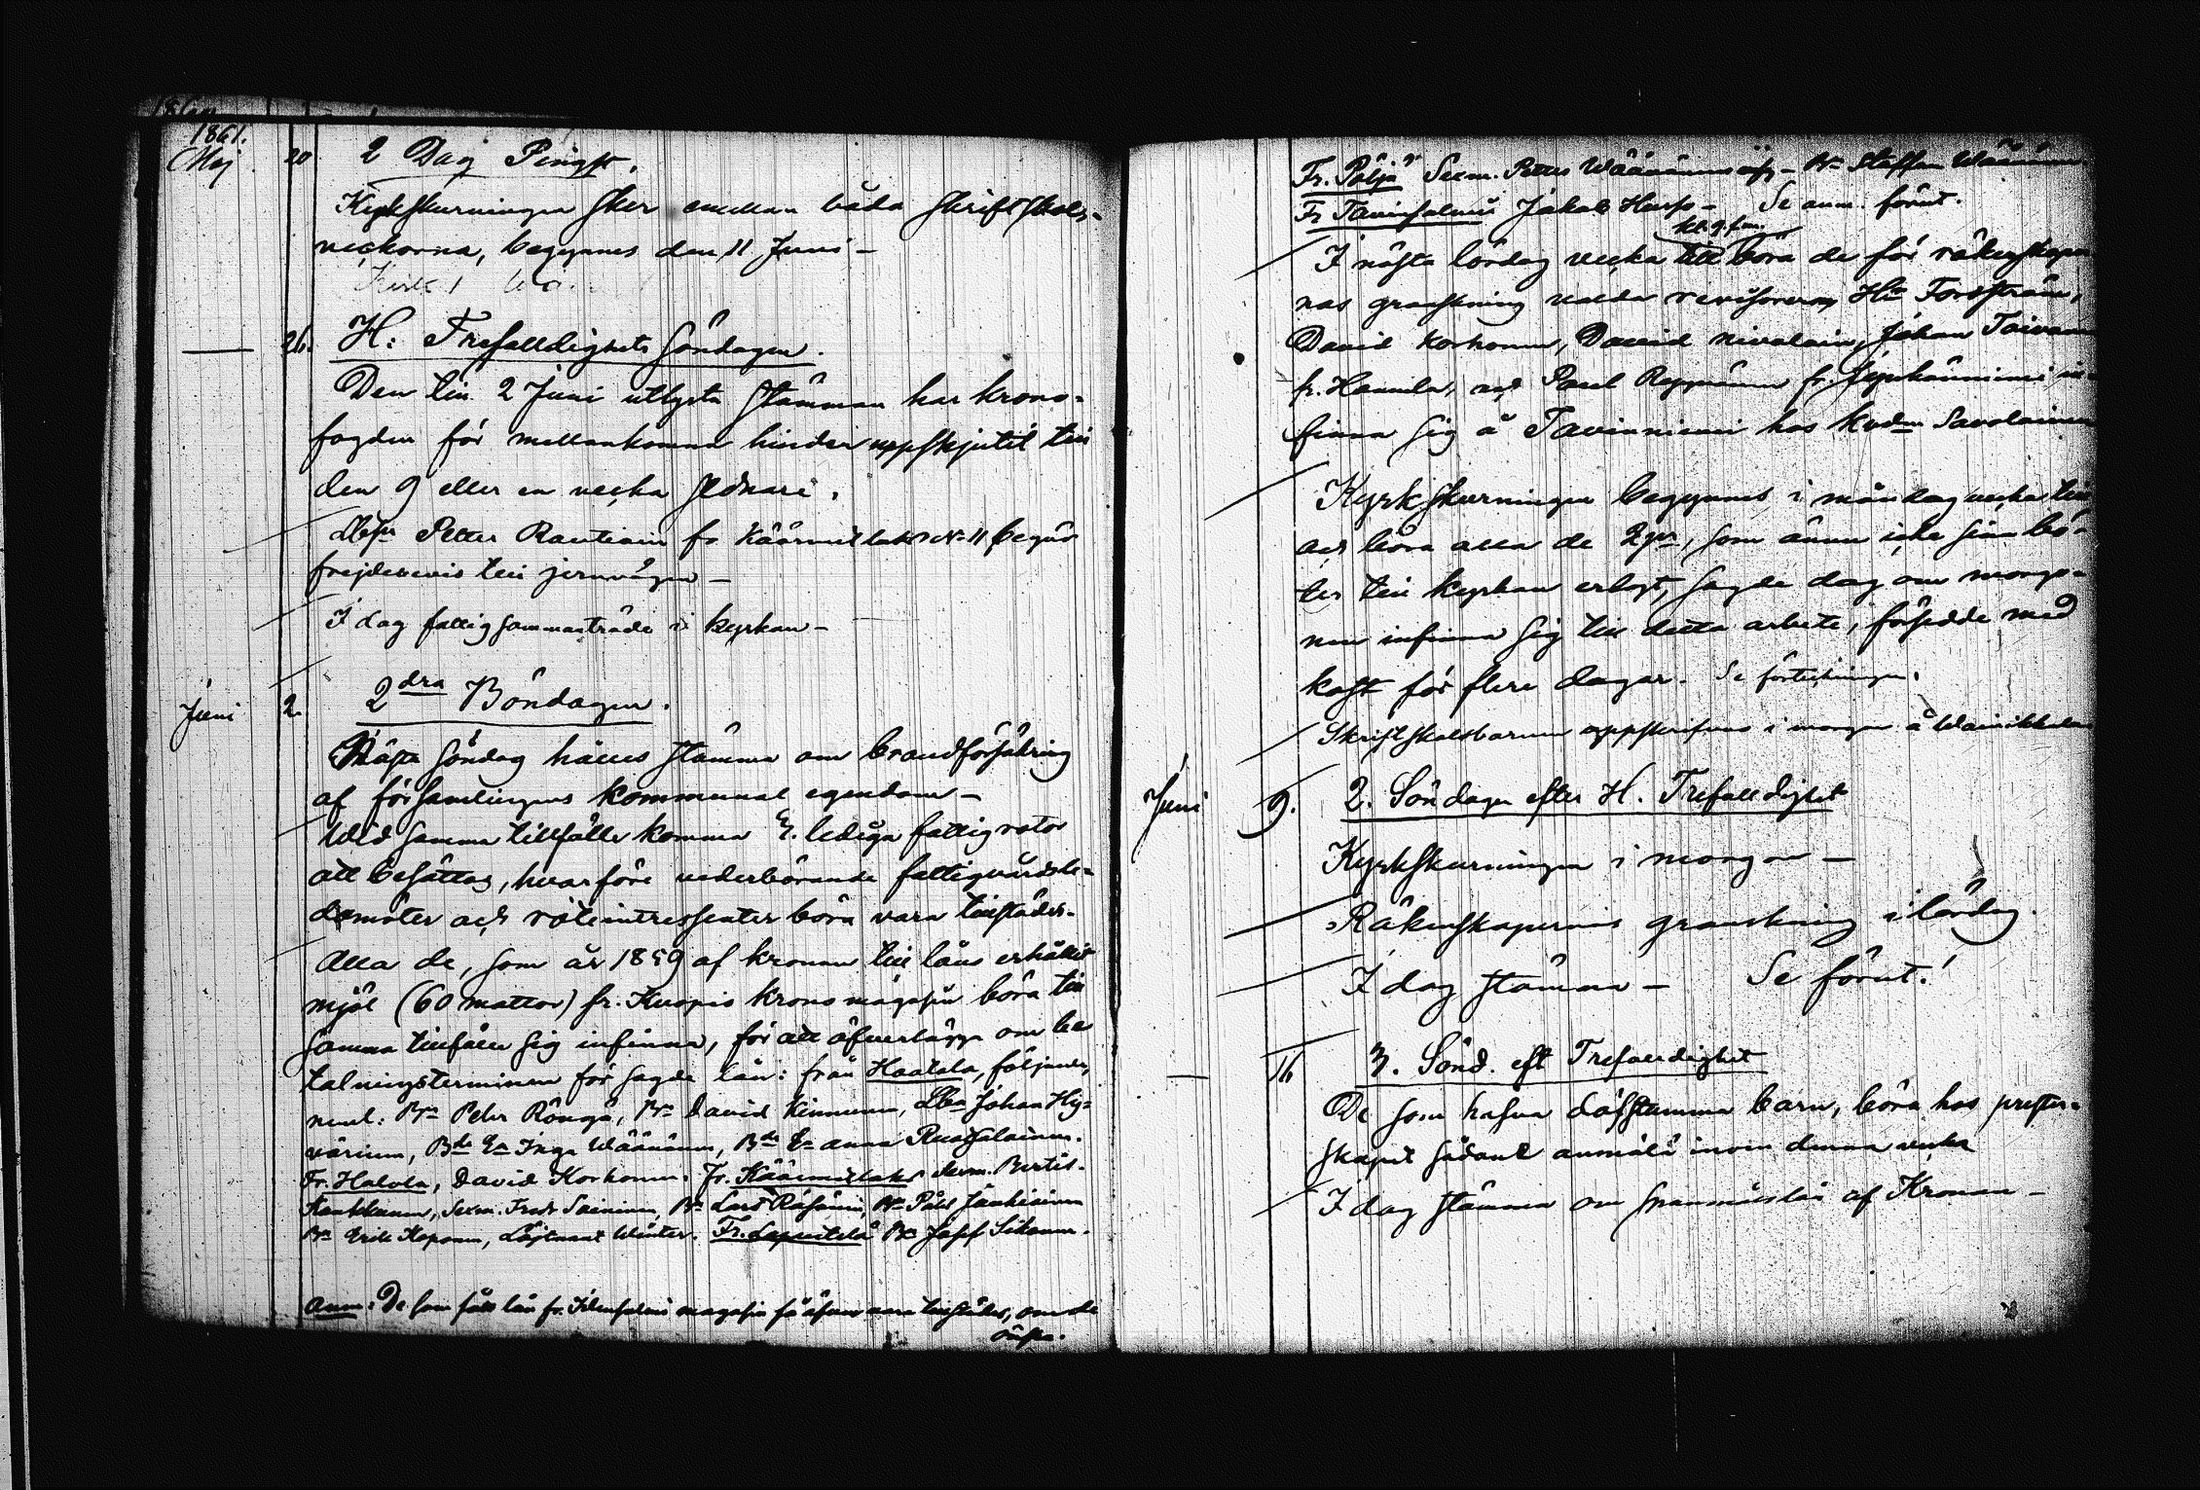 1861.
Maj 20 2 Dag Pingst.
Kyrkskurningen sker emellan båda skriftskols-
veckorna, begynnes den 11 Juni –
26. H: Trefalldighets Söndagen.
Den till 2 Juni utlysta stämman har krono-
fogden för mellankomna hinder uppskjutit till
den 9 eller en vecka sednare.
Petter Rautiain fr Käärmelaks No 11 begär
frejdebevis till jernvägen –
I dag fattigsammanträde i kyrkan –
Juni 2. 2dra Böndagen.
Nästa Söndag hålles stämma om brandförsäkring
af församlingens kommunal egendom –
Wid samma tillfälle komma 3. lediga fattigrotor
att besättas, hvarföre vederbörande fattigvårdsle-
damöter och roteintressenter böra vara tillstädes.
Alla de, som år 1859 af kronan till låns erhållit
mjöl (60 mattor) fr. Kuopio krono magasin böra till
samma tillfälle sig infinna, för att öfverlägga om be
talningsterminen för sagde lån: från Haatala, följande,
neml: Bn Peter Rönqä, Bn David Kinnunen, Johan Hy-
värinen, Inga Wäänänen, Anna Ruotsalainen.
Fr. Halola, David Korhonen. Fr. Käärmelaks Sexm. Bertil
Sexm. Fredr Saininen, Bn Lars Räsänen, Bn Påhl Jauhiainen
Bn Erik Koponen, Löjtnant Winter. Fr. Lapinlaks Bn Josef Sikanen.
Anm: De som fått lån fr. magasin få äfven vara tillstädes, om de
önska.
Fr. Pöljä Sexm. Petter Wäänänen – Bn Staffan Wäänänen
Fr Taivalsalmi Jakob Hurs – Se anm. förut.
kl. 9. f.m.
I nästa lördag vecka till böra de för räkenskaper
nas granskning valda revisorerna, Hr Forsström,
David Korhonen, David Nivalain, Johan Toivanen
fr. Hamula, och Paul Reppänen fr. in-
finna sig å Taviniemi hos Savolainen
Kyrkskurningen begynnes i måndag vecka till
och böra alla de, som ännu icke sina bö-
ter till kyrkan erlagt, sagde dag om morgo-
nen infinna sig till detta arbete, försedde med
kost för flere dagar. Se förteckningen.
Skriftskolsbarnen uppskrifvas i morgon å Wainikkala
Juni 9. 2. Söndagen efter H. Trefalldighet
Kyrkskurningen i morgon –
Räkenskapernas granskning i lördag.
I dag stämma – Se förut!
16 3. Sönd. eft Trefalldighet
De som hafva döfstumma barn, böra hos prester-
skapet sådant anmäla inom denna vecka
I dag stämma om spanmålslån af Kronan –